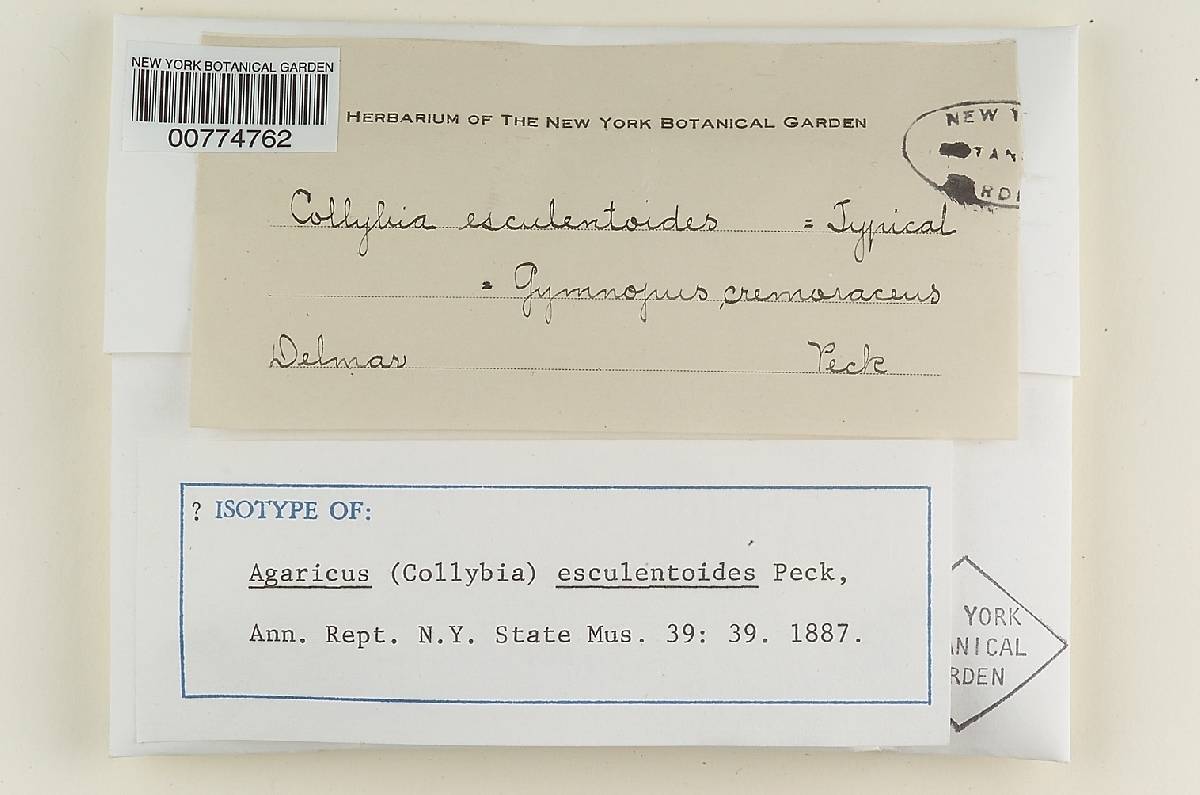 NEW YORK BOTANICAL GARDEN
00774762
HERBARIUM OF THE NEW YORK BOTANICAL GARDEN
NEW Y
OTAN
RDE
Collybia esculentoides = Typical
= Gymnopus cremoraceus
Delmar Peck
? ISOTYPE OF:
Agaricus (Collybia) esculentoides Peck,
Ann. Rept. N.Y. State Mus. 39: 39. 1887.
YORK
ANICAL
RDEN